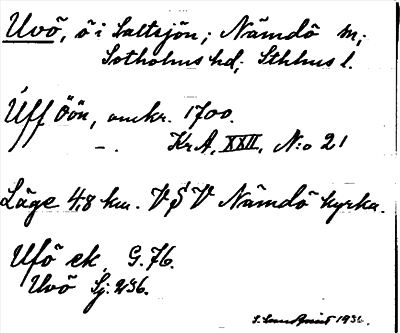 Uvö, ö i Saltsjön; Nämdö sn;
Sotholms hd; Sthlms l.
Uff Öön, omkr. 1700.
-. Kr A, XXII, N:o 21
Läge 4,8 km. V S V Nämdö kyrka.
Ufö ek. G. 76.
Uvö Sj: 236.
1936.